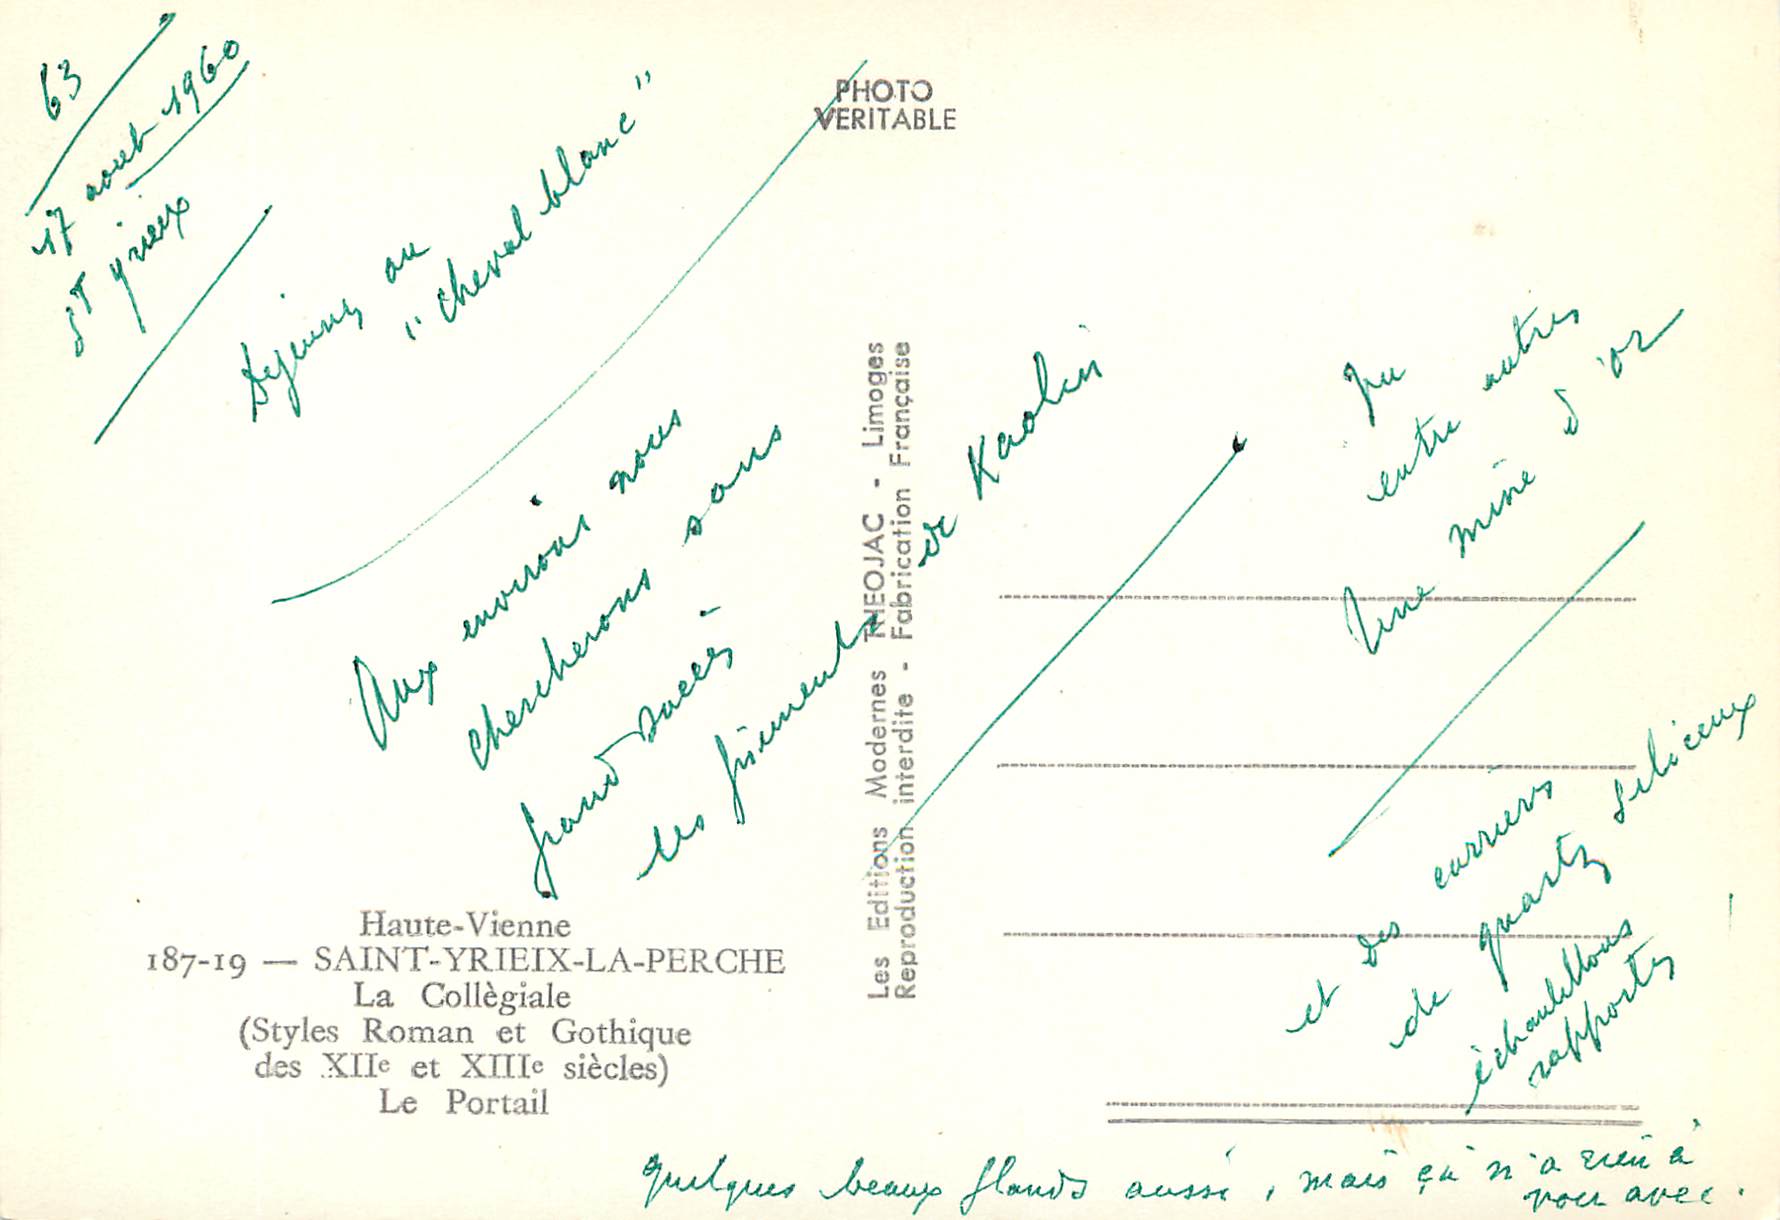 63
17 aout 1960
St Yrieix
Dejeuner au
"cheval blanc"
Aux environs nous
chercherons sans
grand succès
les gisements de Kaolin
Vu
entre autres
Une mine d'or
et des carrières
de quartz siliceux
échantillons
rapportés
!
quelques beaux glands aussi, mais ça n'a rien à
voir avec.
PHOTO
VERITABLE
Les Editions Modernes THEOJAC - Limoges
Reproduction interdite - Fabrication Française
Haute-Vienne
187-19 — SAINT-YRIEIX-LA-PERCHE
La Collègiale
(Styles Roman et Gothique
des XIIe et XIIIe siècles)
Le Portail